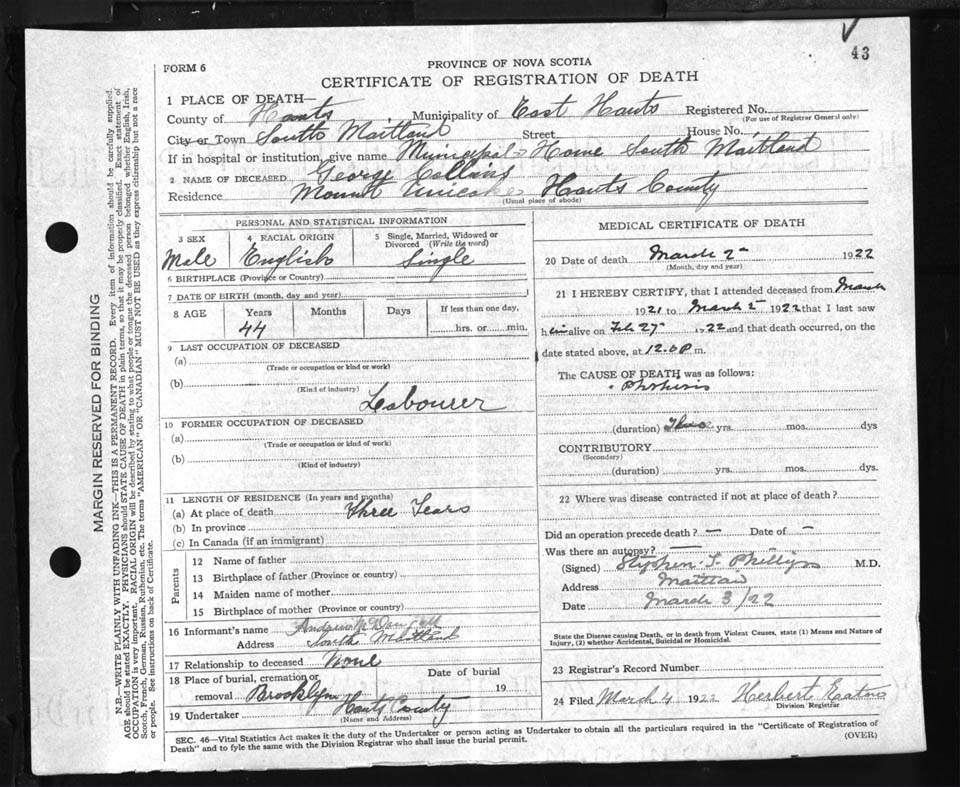 43
FORM 6
PROVINCE OF NOVA SCOTIA
CERTIFICATE OF REGISTRATION OF DEATH
MARGIN RESERVED FOR BINDING
N.B.—WRITE PLAINLY WITH UNFADING INK—THIS IS A PERMANENT RECORD. Every item of information should be carefully supplied.
AGE should be stated EXACTLY. PHYSICIANS should STATE CAUSE OF DEATH in plain terms, so that it may be properly classified. Exact statement of
OCCUPATION is very important. RACIAL ORIGIN will be described by stating to what people or tongue the deceased person belonged, whether English, Irish,
Scotch, French, German, Russian, Ruthenian, etc. The terms "AMERICAN" OR "CANADIAN" MUST NOT BE USED as they express citizenship but not a race
or people. See instructions on back of Certificate.
1 PLACE OF DEATH—
County of Hants Municipality of East Hants Registered No.
(For use of Registrar General only)
City or Town South Maitland Street House No.
If in hospital or institution, give name Municipal Home South Maitland
2 NAME OF DECEASED George Collins
Residence Mount Uniacke Hants County
(Usual place of abode)
PERSONAL AND STATISTICAL INFORMATION
3 SEX 4 RACIAL ORIGIN 5 Single, Married, Widowed or Divorced (Write the word)
Male English Single
6 BIRTHPLACE (Province or Country)
7 DATE OF BIRTH (month, day and year)
8 AGE Years Months Days If less than one day,
44 hrs. or min.
9 LAST OCCUPATION OF DECEASED
(a)
(Trade or occupation or kind or work)
(b)
(Kind of industry)
Labourer
10 FORMER OCCUPATION OF DECEASED
(a)
(Trade or occupation or kind or work)
(b)
(Kind of industry)
11 LENGTH OF RESIDENCE (In years and months)
(a) At place of death Three Years
(b) In province
(c) In Canada (if an immigrant)
Parents
12 Name of father
13 Birthplace of father (Province or country)
14 Maiden name of mother
15 Birthplace of mother (Province or country)
16 Informant's name Andrew
Address South Maitland
17 Relationship to deceased None
18 Place of burial, cremation or Date of burial
removal Brooklyn 19
Hants County
19 Undertaker
(Name and Address)
MEDICAL CERTIFICATE OF DEATH
20 Date of death March 2 1922
(Month, day and year)
21 I HEREBY CERTIFY, that I attended deceased from March
1921 to March 2 1922 that I last saw
him alive on Feb 27 1922 and that death occurred, on the
date stated above, at 12.00 P m.
The CAUSE OF DEATH was as follows:
Phthisis
(duration) Three yrs. mos. dys
CONTRIBUTORY
(Secondary)
(duration) yrs. mos. dys.
22 Where was disease contracted if not at place of death?
Did an operation precede death? — Date of —
Was there an autopsy? —
(Signed) Stephen S. Phillips M.D.
Address Maitland
Date March 3/22
State the Disease causing Death, or in death from Violent Causes, state (1) Means and Nature of
Injury, (2) whether Accidental, Suicidal or Homicidal.
23 Registrar's Record Number
24 Filed March 4 1922 Herbert Eaton
Division Registrar
SEC. 46—Vital Statistics Act makes it the duty of the Undertaker or person acting as Undertaker to obtain all the particulars required in the "Certificate of Registration of
Death" and to fyle the same with the Division Registrar who shall issue the burial permit.
(OVER)